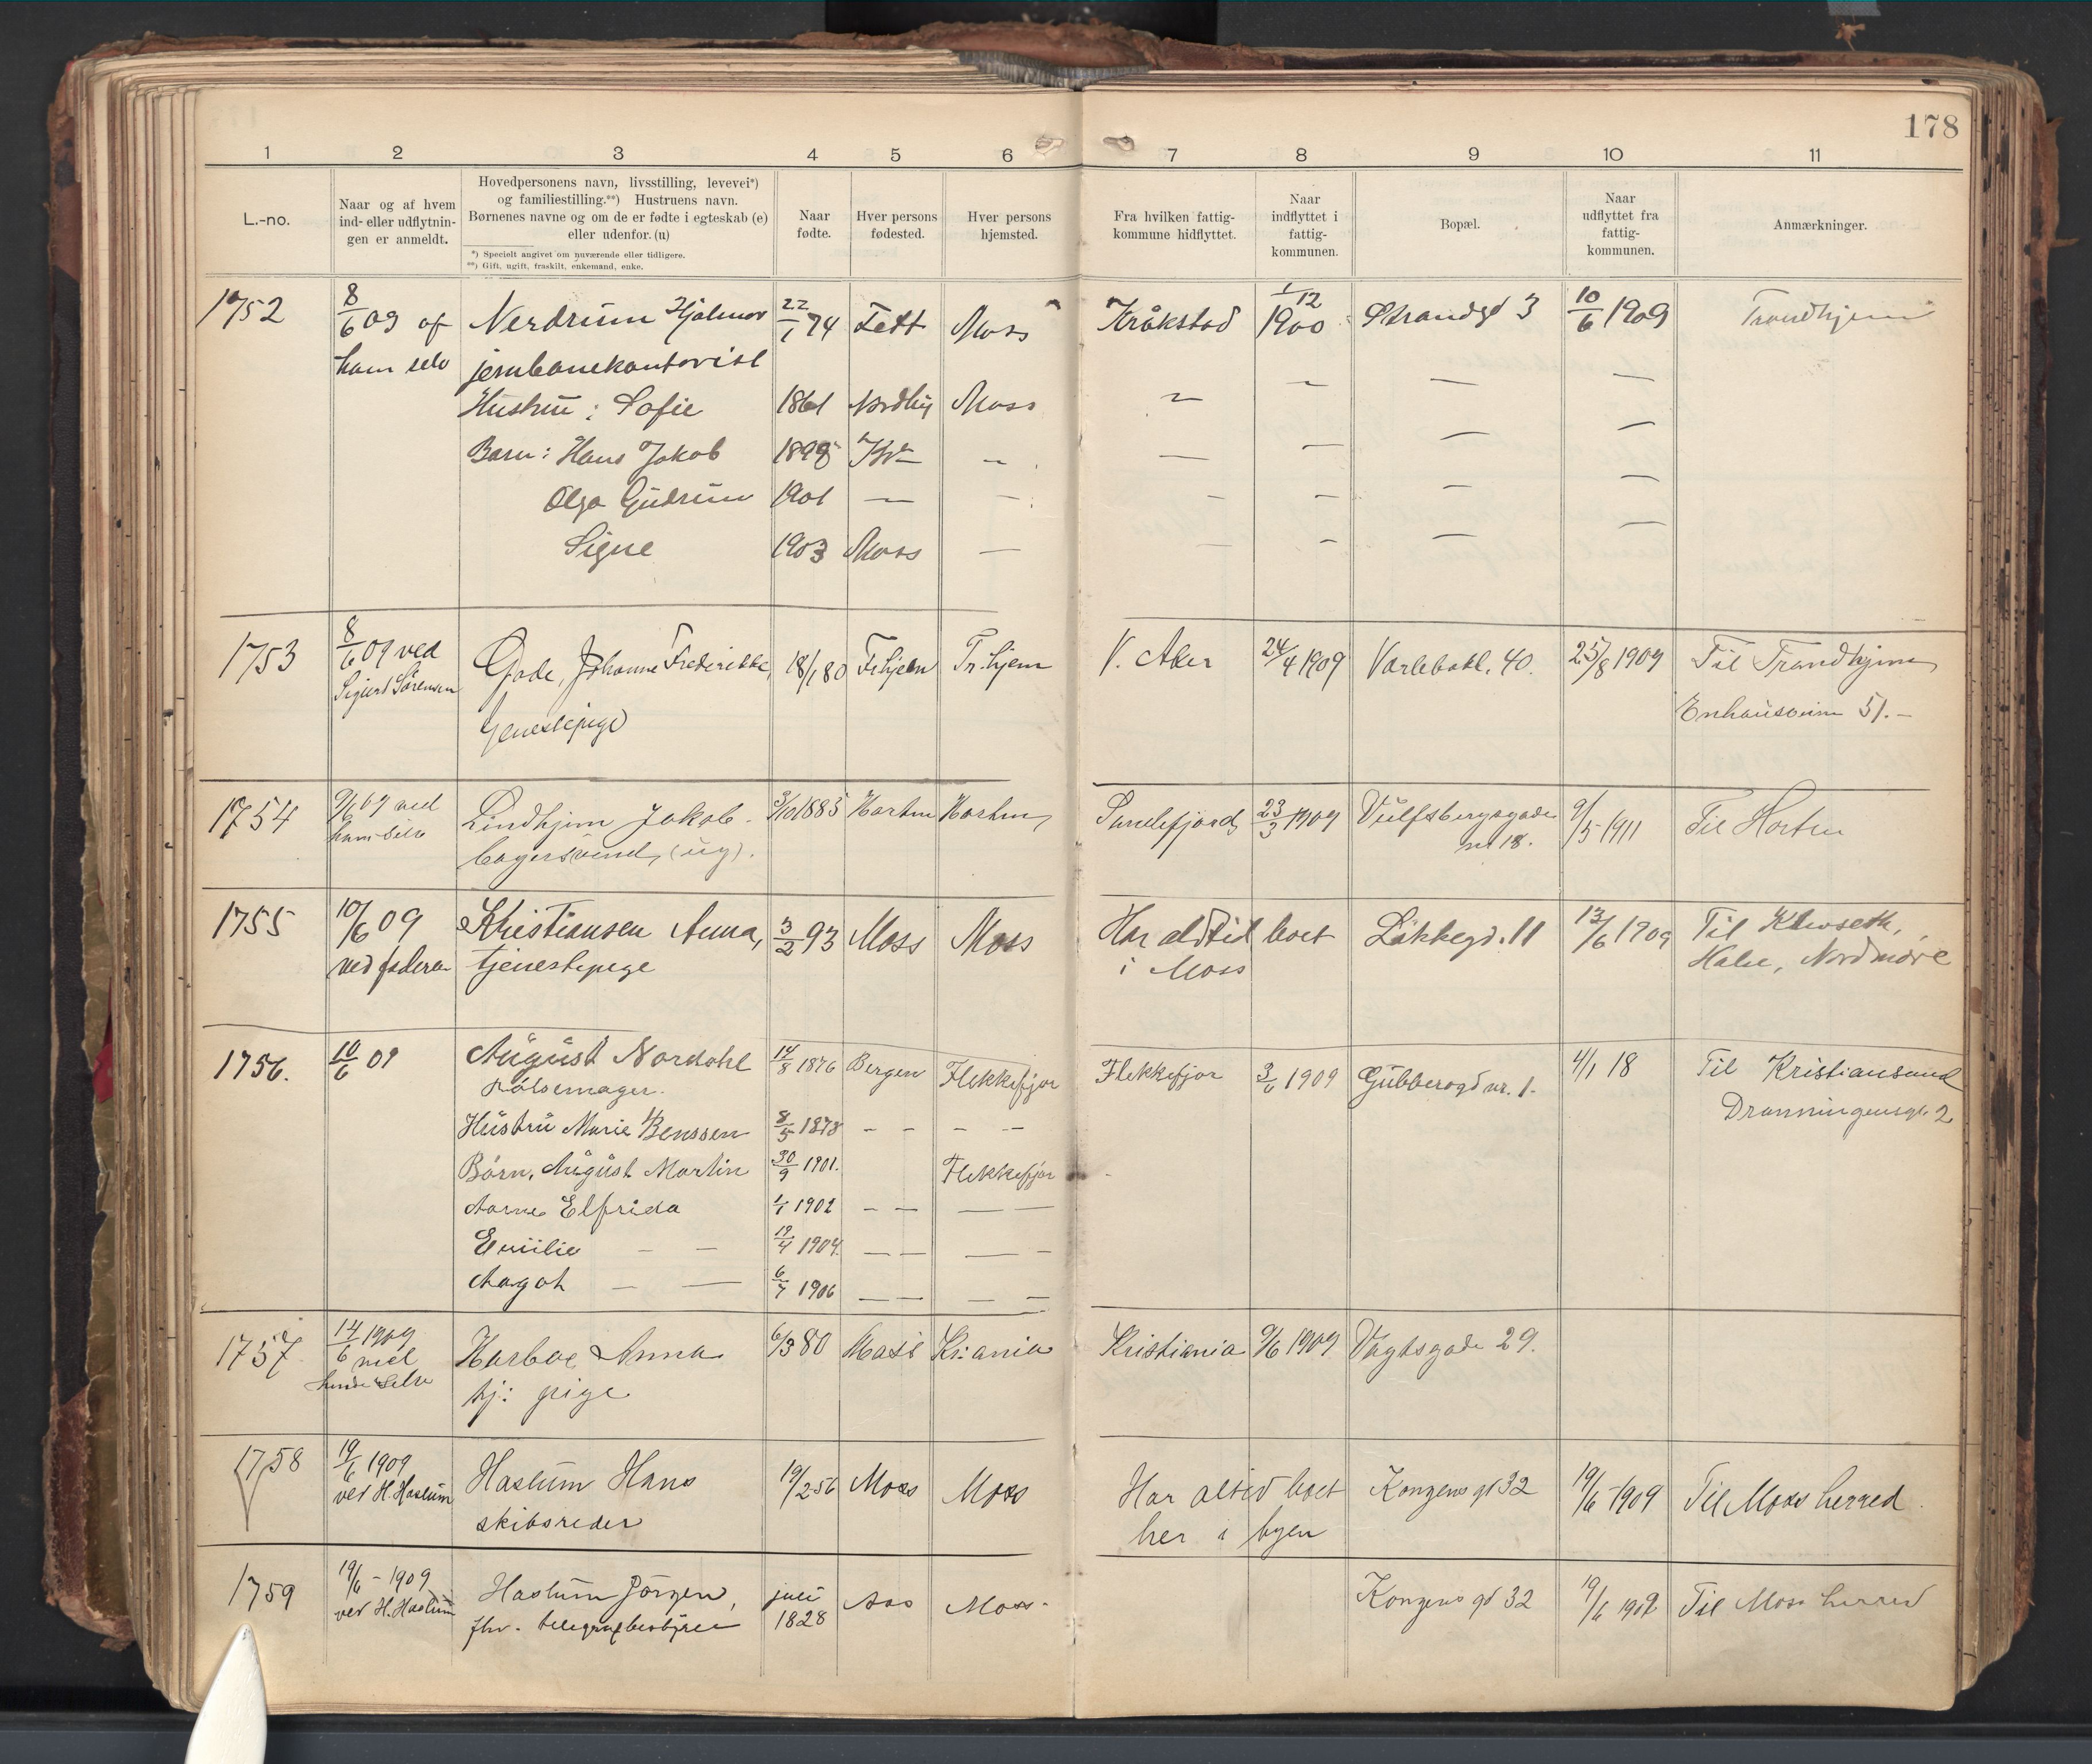 178
1 2 3 4 5 6 7 8 9 10 11
L.-no.
Naar og af hvem
ind- eller udflytnin-
gen er anmeldt.
Hovedpersonens navn, livsstilling, levevei*)
og familiestilling.**) Hustruens navn.
Børnenes navne og om de er fødte i egteskab (e)
eller udenfor. (u)
*) Specielt angivet om nuværende eller tidligere.
**) Gift, ugift, fraskilt, enkemand, enke.
Naar
fødte.
Hver persons
fødested.
Hver persons
hjemsted.
Fra hvilken fattig-
kommune hidflyttet.
Naar
indflyttet i
fattig-
kommunen.
Bopæl.
Naar
udflyttet fra
fattig-
kommunen.
Anmærkninger.
1752 8/6 09 af Nerdrum Hjalmar 22/1 74 Fett Moss Kråkstad 1/12 1900 Strandgd 3 10/6 1909 Trondhjem
ham selv jernbanekontorist
Hustru: Sofie 1861 Nordby Moss — — — —
Barn: Hans Jakob 1898 Kr — — — — —
Olga Gudrun 1901 — — — — — —
Signe 1903 Moss — — — — —
1753 8/6 09 ved Gade, Johanne Frederikke, 18/1 80 Tr.hjem V. Aker 24/4 1909 Varlebakk. 40. 25/8 1909 Til Trondhjem
Sigurd Sörensen 51.-
tjenestepige
1754 9/6 09 ved Lindhjem Jakob 3/10 1885 Horten Horten, Sandefjord 23/3 1909 Vulfsbergsgade 9/5 1911 Til Horten
ham selv bagersvend, (ug). nr 18.
1755 10/6 09 Khristiansen Anna, 3/2 93 Moss Moss Har altid boet Løkkegd. 11 13/6 1909 Til
ved faderen tjenestepige i Moss Halse, Nordmøre
1756. 10/6 09 August Nordahl 14/8 1876 Bergen Flekkefjor Flekkefjor 3/6 1909 Gubberogd nr. 1. 4/1 18 Til Kristiansund
Pølsemager. Dronningensgt. 2
Hustru Marie Benssen 8/5 1878 — — — —
Børn, August Martin 30/9 1901. Flekkefjor
Elfrida 1/1 1902 — — — —
Emilie — — 19/4 1904. — — — —
Magot — — 6/7 1906 — — — —
1757 14/6 1909 Harboe Anna 6/3 80 Moss Kr:ania Kristiania 9/6 1909 Vogtsgade 29.
ved
hende selv tj: pige
1758 19/6 1909 Haslum Hans 19/2 56 Moss Moss Har altid boet Kongens gt 32 19/6 1909 Til Moss herred.
ved H. Haslum skibsreder her i byen
1759 19/6 - 1909 Haslum Jörgen, juli Aas Moss. Kongens gd 32 19/6 1909 Til Moss herred
ved H. Haslum fhv. telegrafbestyrer 1828